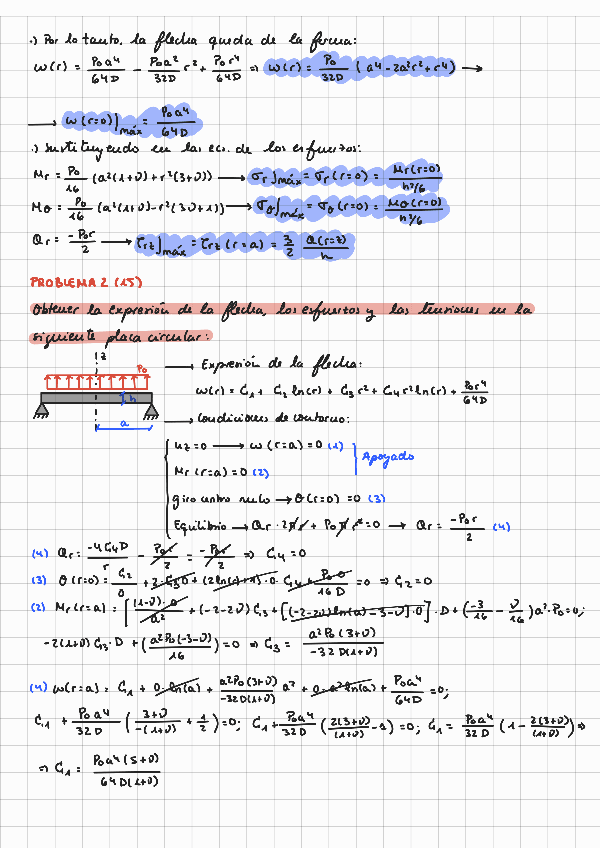 ·) Por lo tanto, la flecha queda de la forma:
ω(r) = P₀a⁴/64D − P₀a²/32D r² + P₀r⁴/64D ⇒ ω(r) = P₀/32D (a⁴ − 2a²r² + r⁴) →
→ ω(r=0)]máx = P₀a⁴/64D
·) Sustituyendo en las ecs. de los esfuerzos:
Mr = P₀/16 (a²(1+ν) + r²(3+ν)) → σr]máx = σr(r=0) = Mr(r=0)/h²/6
Mθ = P₀/16 (a²(1+ν) − r²(3ν+1)) → σθ]máx = σθ(r=0) = Mθ(r=0)/h²/6
Qr = −P₀r/2 → τrz]máx = τrz(r=a) = 3/2 Q(r=z)/h
PROBLEMA 2 (15)
Obtener la expresión de la flecha, los esfuertos y las tensiones en la
siguiente placa circular:
z
P₀
h
a
→ Expresión de la flecha:
ω(r) = C₁ + C₂ ln(r) + C₃ r² + C₄ r² ln(r) + P₀r⁴/64D
→ Condiciones de contorno:
uz = 0 → ω(r=a) = 0 (1)
Mr(r=a) = 0 (2)
Apoyado
giro centro nulo → θ(r=0) = 0 (3)
Equilibrio → Qr · 2πr + P₀πr² = 0 → Qr = −P₀r/2 (4)
(4) Qr = −4C₄D/r − P₀r/2 = −P₀r/2 ⇒ C₄ = 0
(3) θ(r=0) = C₂/0 + 2·C₃·0 + (2ln(r)+1)·0·C₄ + P₀·0/16D = 0 ⇒ C₂ = 0
(2) Mr(r=a) = [(1−ν)·0/a² + (−2−2ν)C₃ + [(−2−2ν)ln(a)−3−ν]·0]·D + (−3/16 − ν/16)a²·P₀ = 0;
−2(1+ν)C₃·D + (a²P₀(−3−ν)/16) = 0 ⇒ C₃ = a²P₀(3+ν)/−32D(1+ν)
(4) ω(r=a) = C₁ + 0·ln(a) + a²P₀(3+ν)/−32D(1+ν) a² + 0·a²ln(a) + P₀a⁴/64D = 0;
C₁ + P₀a⁴/32D (3+ν/−(1+ν) + 1/2) = 0; C₁ + P₀a⁴/32D (2(3+ν)/(1+ν) − 1) = 0; C₁ = P₀a⁴/32D (1 − 2(3+ν)/(1+ν)) ⇒
⇒ C₁ = P₀a⁴(5+ν)/64D(1+ν)